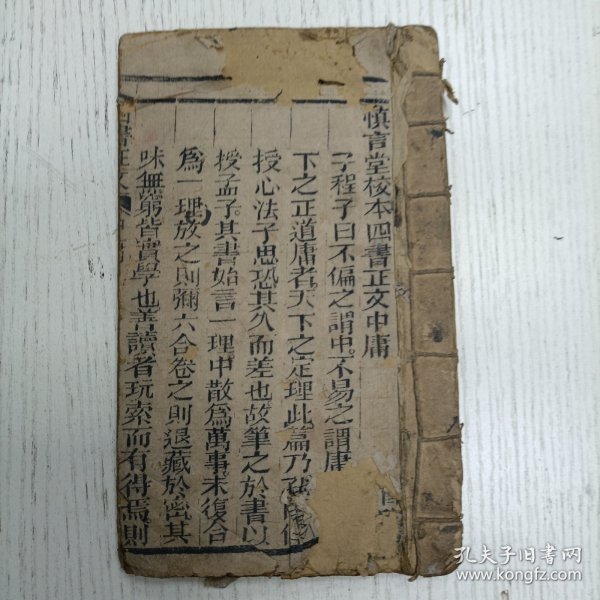 慎言堂校本四書正文中庸
子程子曰不偏之謂中不易之謂庸
下之正道庸者天下之定理此篇乃孔
授心法子思恐其久而差也故筆之於書以
授孟子其書始言一理中散為萬事末復合
為一理放之則彌六合卷之則退藏於密其
味無窮皆實學也善讀者玩索而有得焉則
四書正文
孔夫子旧书网
www.kongfz.com